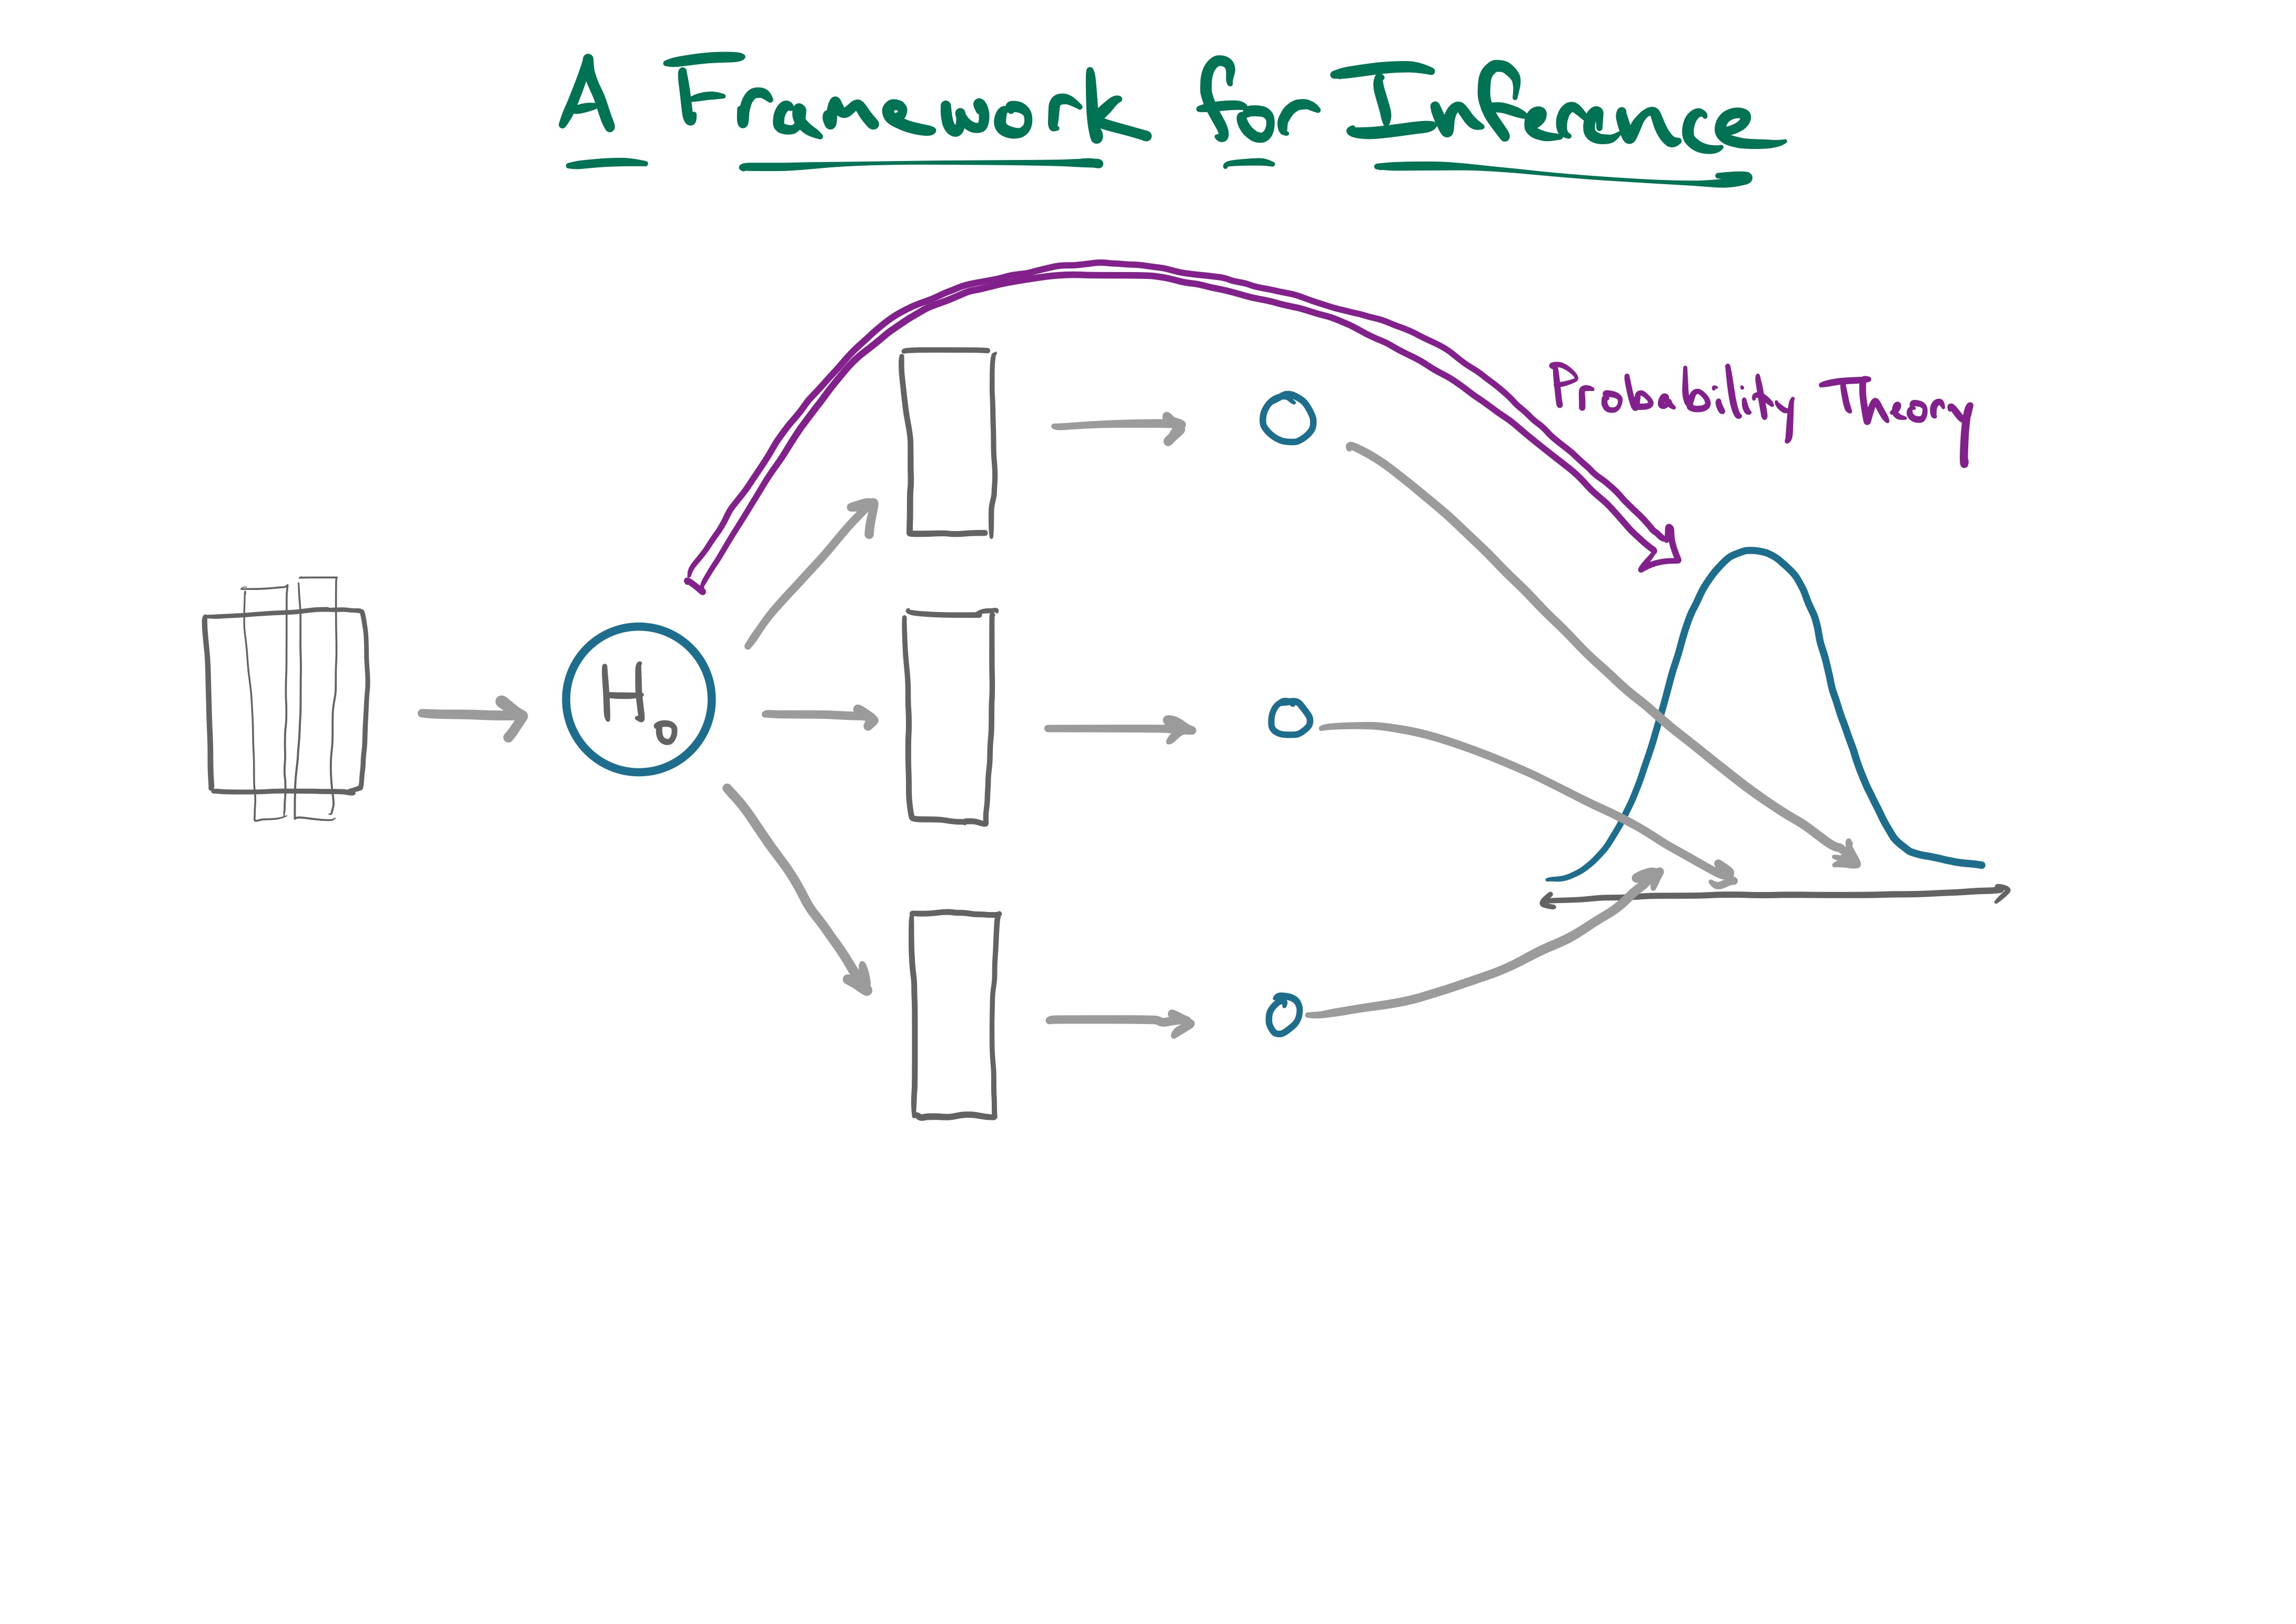 A Framework for Inference
Probability Theory
H₀